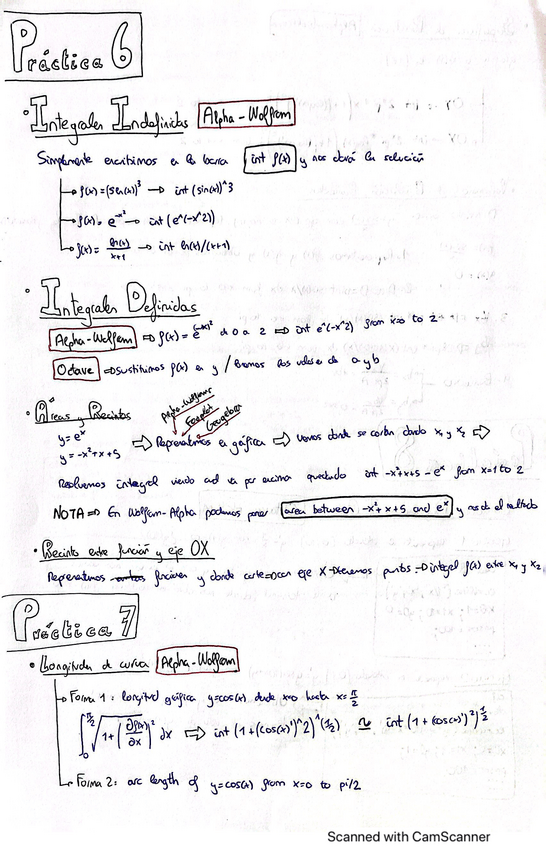 Práctica 6
• Integrales Indefinidas Alpha-Wolfram
Simplemente escribimos en la barra int f(x) y nos dará la solución
→ f(x) = (sen(x))^3 → int (sin(x))^3
→ f(x) = e^{-x^2} → int (e^(-x^2))
→ f(x) = ln(x)/(x+1) → int ln(x)/(x+1)
• Integrales Definidas
Alpha-Wolfram ⇒ f(x) = e^{(-x)^2} d 0 a 2 ⇒ int e^(-x^2) from x=0 to 2
Octave ⇒ sustituimos f(x) en y / Damos los valores de a y b
Alpha-Wolfram
Geogebra
• Áreas y Recintos
y = e^x
y = -x^2+x+5 ⇒ Representamos en gráfica ⇒ vemos donde se cortan dando x1 y x2 ⇒
Resolvemos integral viendo cual va por encima quedando int -x^2+x+5 - e^x from x=1 to 2
NOTA ⇒ En Wolfram-Alpha podemos poner area between -x^2+x+5 and e^x y nos da el resultado
• Recinto entre función y eje OX
Representamos funciones y donde corte con eje X → tenemos puntos → integral f(x) entre x1 y x2
Práctica 7
• Longitud de curva Alpha-Wolfram
→ Forma 1: longitud gráfica y=cos(x) desde x=0 hasta x=π/2
∫_0^{π/2} √(1+(∂f(x)/∂x)^2) dx ⇒ int (1+(cos(x)')^2)^(1/2) ≃ int (1+(cos(x)')^2)^{1/2}
→ Forma 2: arc length of y=cos(x) from x=0 to pi/2
Scanned with CamScanner